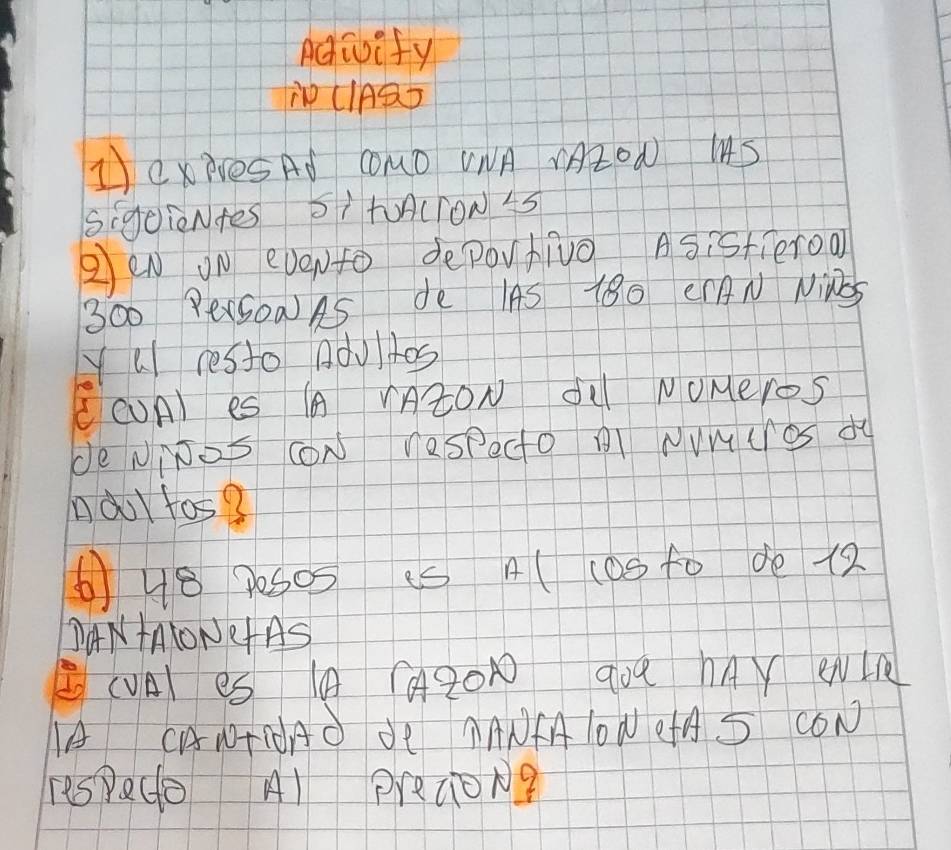 Activity
in CLASS
1) expresAd como UNA rAzoN lAS
sigoieNtes situAcioN es
a) eN UN eveNto deportivo Asistieron
300 PersoNAS de lAS 180 erAN Niños
y el resto Adultos
¿cuAl es lA rAzoN del NUMeros
de NiÑos coN respecto Al NuMeros de
Adultos?
b) 48 pesos es Al costo de 12
PANtAloNetAS
¿cuAl es lA rAzoN que hAY eNtre
lA cANtidAd de PANtAloNetAS coN
respecto Al PrecioN?